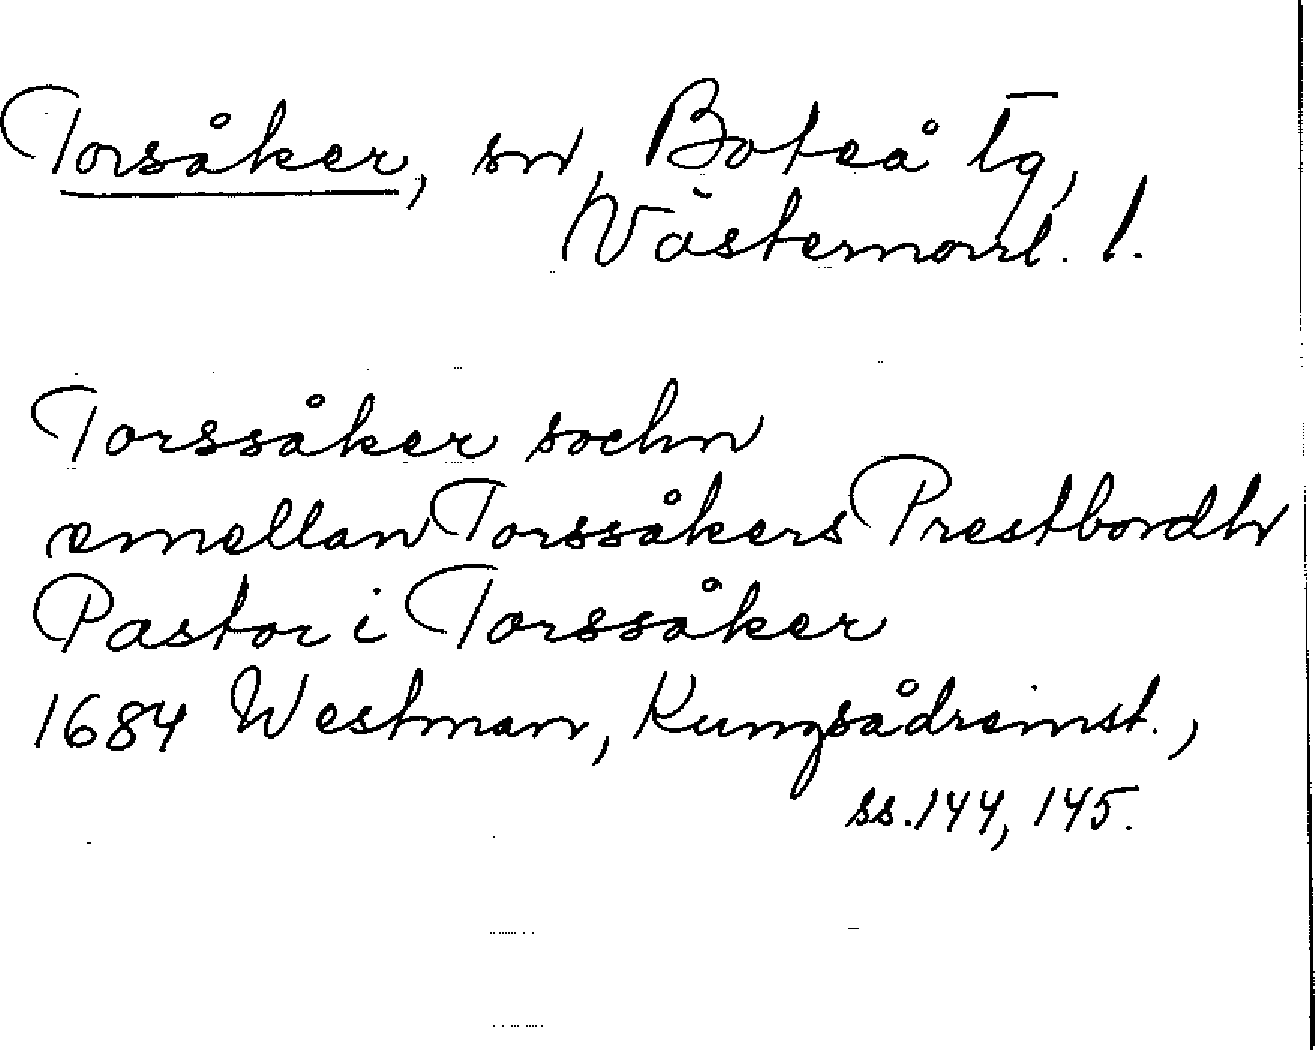 Torsåker, sn, Boteå tg,
Västernorrl. l.
Torssåker sochn
emellan Torssåkers Prestbordh
Pastor i Torssåker
1684 Westman, Kungsådreinst.,
ss. 144, 145.